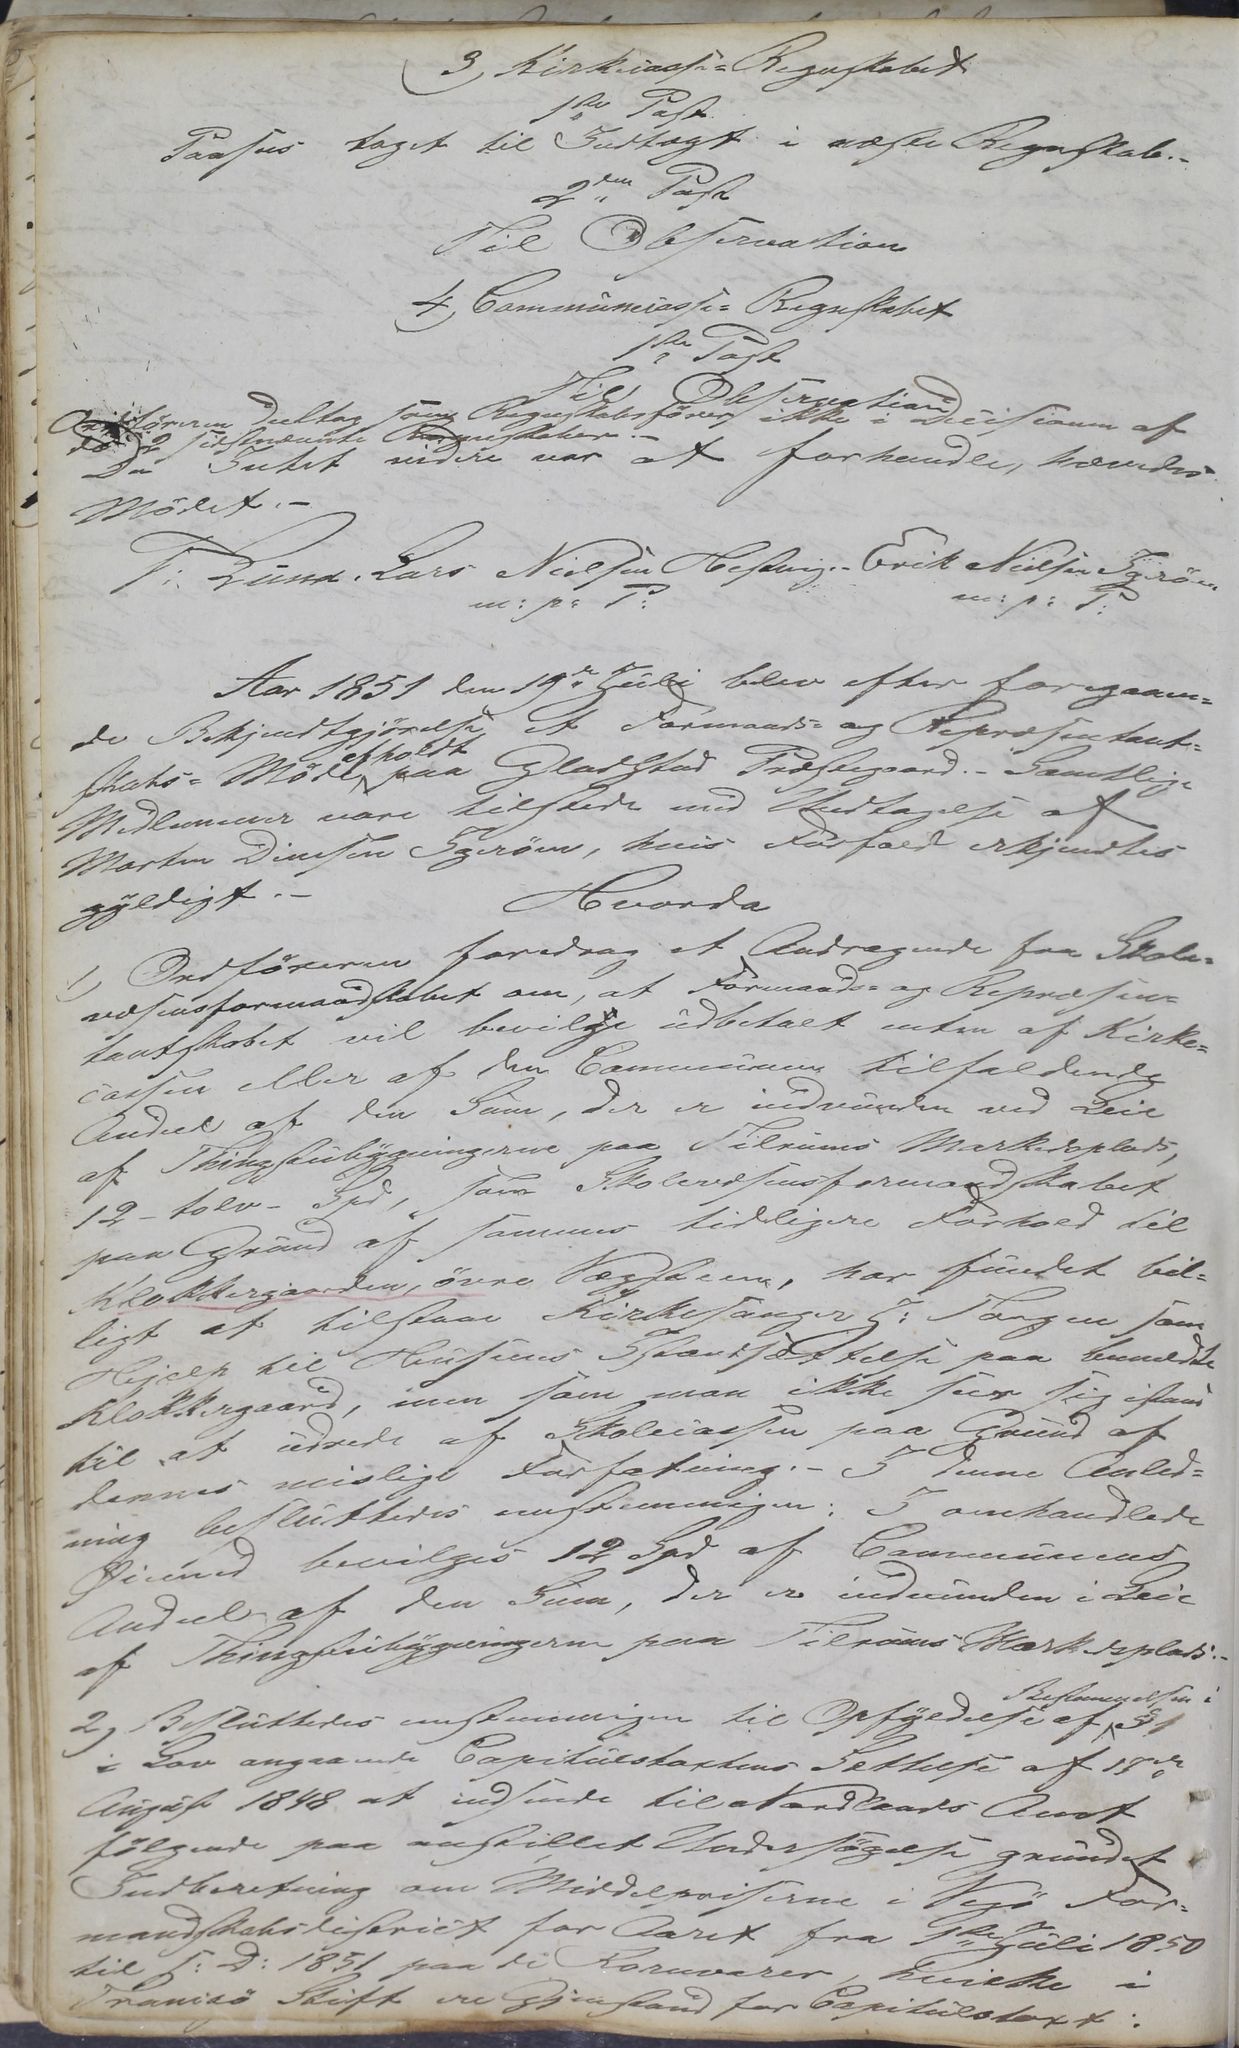 3, Kirkecasse-Regnskabet
1ste Post
Passus taget til Indtægt i næste Regnskab.-
2den Post
Til Observation
4, Communecasse-Regnskabet
1ste Post
Til Observation
Ordföreren deltog som Regnskabsförer ikke i Decisionen af
de 2 sidstnævnte Regnskaber.-
Da Intet videre var at forhandle, hævedes
Mödet.-
F: Lund. Lars Nielsen Hestvig.- Erik Nielsen Igeröen
m: p: P: m: p: P:
Aar 1851 den 19de Juli blev efter foregaaen-
de Bekjendtgjörelse et Formands- og Repræsentant-
skabs-Möde afholdt paa Gladstad Præstegaard.- Samtlige
Medlemmer vare tilstede med Undtagelse af
Morten Dinesen Igeröen, hvis Forfald erkjendtes
gyldigt.-
Hvorda
1, Ordföreren foredrog et Andragende fra Skole-
væsensformandskabet om, at Formands- og Repræsen-
tantskabet vil bevilge udbetalt enten af Kirke-
cassen eller af den Communen tilfaldende
Andeel af den Sum, der er indvunden ved Leie
af Thingstubygningerne paa Tilrums Markedsplads,
12 - tolv - Spd, som Skolevæsensformandskabet
paa Grund af sammes tidligere Forhold til
Klokkergaarden, övre Vægsteen, har fundet bil-
ligt at tilstaae Kirkesanger J: Torgersen som
Hjælp til Husenes Istandsættelse paa bemeldte
Klokkergaard, men som man ikke seer sig istand
til at udrede af Skolecassen paa Grund af
dennes mislige Forfatning.- I denne Anled-
ning besluttedes eenstemmigen: I omhandlede
Öiemed bevilges 12 Spd af Communens
Andeel af den Sum, der er indvunden i Leie
af Thingstubygningerne paa Tilrums Markedsplads.-
2, Besluttedes eenstemmigen til Opfyldelse af Bestemmelsen i § 1
i Lov angaaende Capitelstaxtens Settelse af 17de
August 1848 at indsende til Nordlands Amt
fölgende paa anstillet Undersögelse grundet
Indberetning om Middelpriserne i Vegö For-
mandskabsdistrict for Aaret fra 1ste Juli 1850
til S: D: 1851 paa de Kornvarer, hvilke i
Tromsö Stift ere Gjenstand for Capitelstaxt: